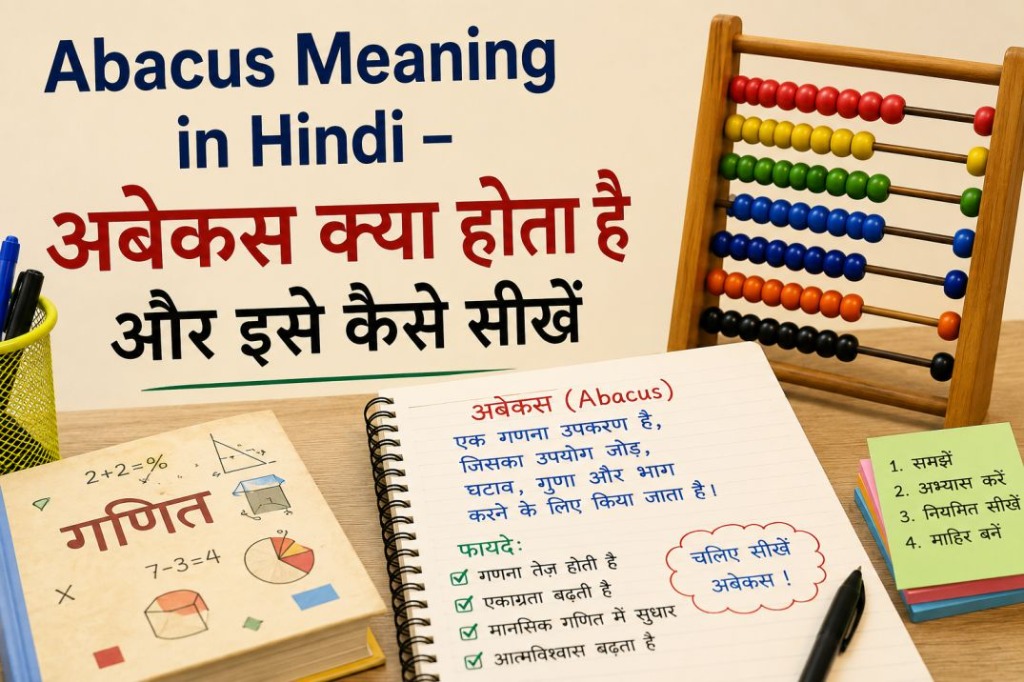 Abacus Meaning
in Hindi –
अबेकस क्या होता है
और इसे कैसे सीखें
अबेकस (Abacus)
एक गणना उपकरण है,
जिसका उपयोग जोड़,
घटाव, गुणा और भाग
करने के लिए किया जाता है।
फायदे:
गणना तेज़ होती है
एकाग्रता बढ़ती है
मानसिक गणित में सुधार
आत्मविश्वास बढ़ता है
चलिए सीखें
अबेकस !
2+2=%
गणित
7-3=4
x
1. समझें
2. अभ्यास करें
3. नियमित सीखें
4. माहिर बनें